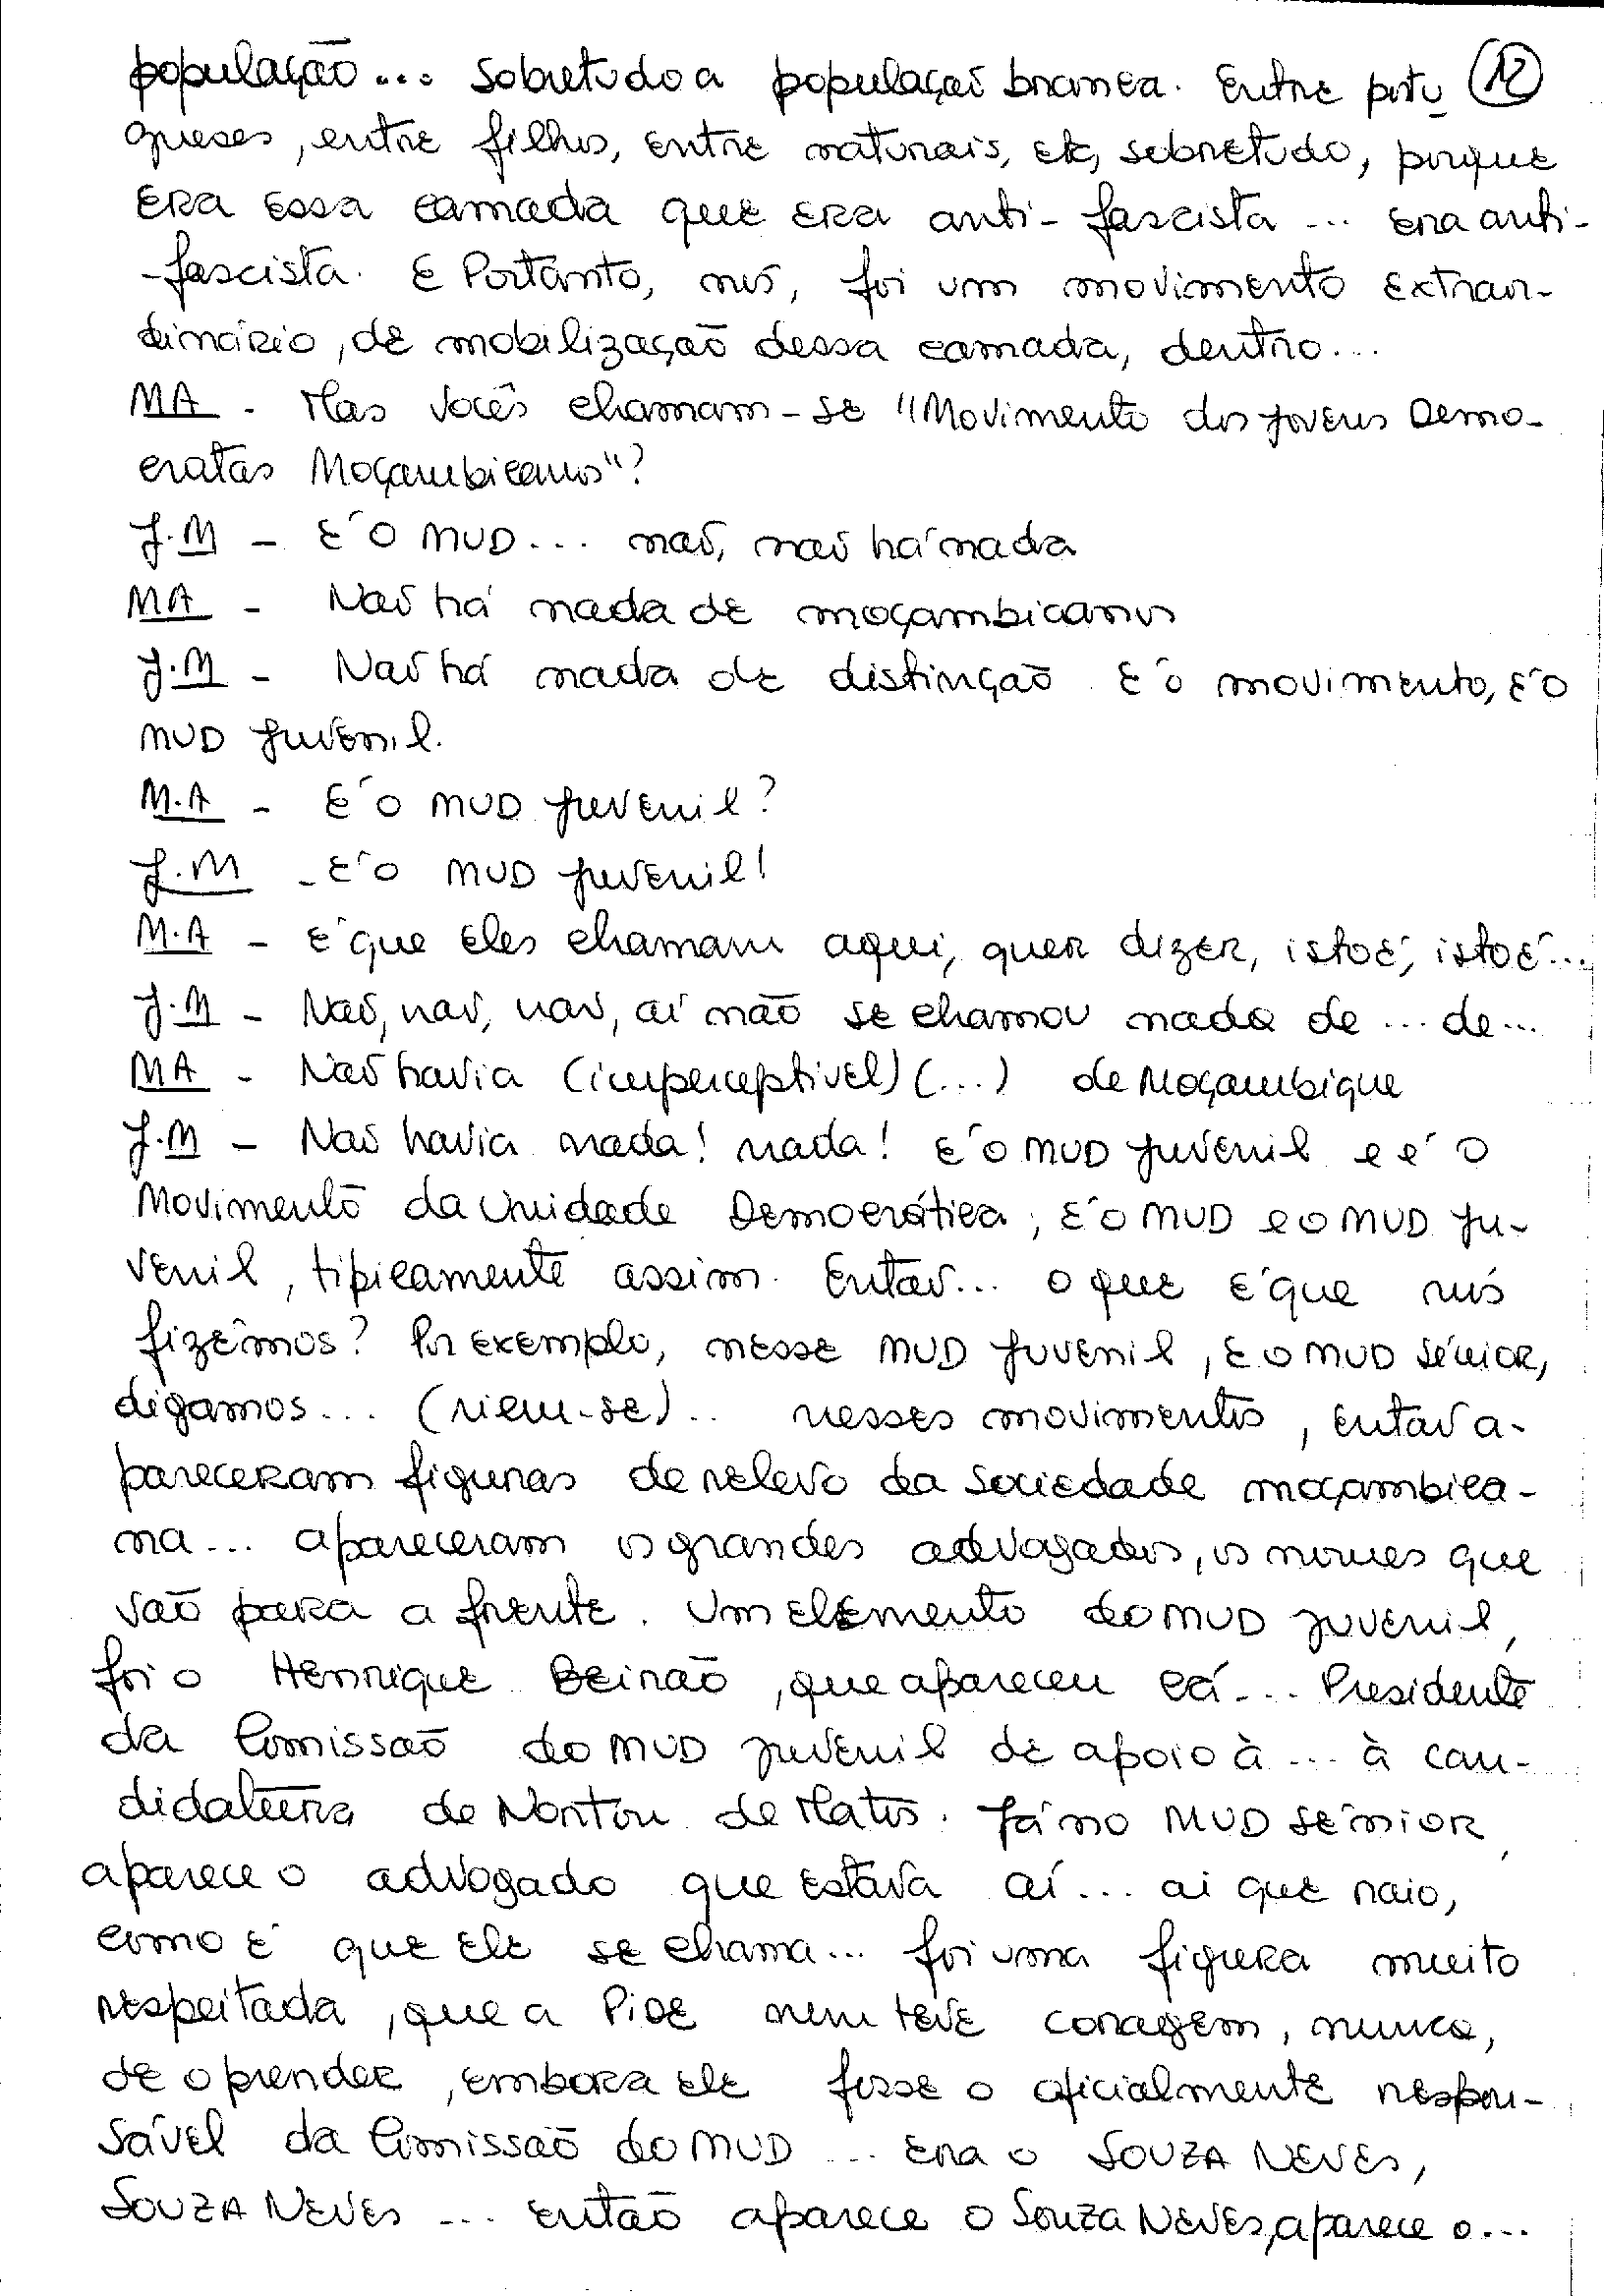 população... sobretudo a população branca. Entre portu (12)
gueses, entre filhos, entre naturais, etc, sobretudo, porque
era essa camada que era anti-fascista... era anti-
-fascista. E Portanto, nós, foi um movimento extraor-
dinário, de mobilização dessa camada, dentro...
MA - Mas vocês chamam-se "Movimento dos jovens Demo-
cratas Moçambicanos"?
J.M - É o MUD... não, não há nada
MA - Não há nada de moçambicanos
J.M - Não há nada de distinção É o movimento, é o
MUD juvenil.
M.A - É o MUD juvenil?
J.M - É o MUD juvenil!
M.A - É que eles chamam aqui, quer dizer, isto é, isto é...
J.M - Não, não, não, aí não se chamou nada de... de...
MA - Não havia (imperceptível) (...) de Moçambique
J.M - Não havia nada! nada! É o MUD juvenil e é o
Movimento da Unidade Democrática, é o MUD e o MUD ju-
venil, tipicamente assim. Então... o que é que nós
fizémos? Por exemplo, nesse MUD juvenil, e o MUD sénior,
digamos... (riem-se).. nesses movimentos, então a-
pareceram figuras de relevo da sociedade moçambica-
na... apareceram os grandes advogados, os nomes que
vão para a frente. Um elemento do MUD juvenil,
foi o Henrique Beirão, que apareceu cá... Presidente
da Comissão do MUD juvenil de apoio à... à can-
didatura de Norton de Matos. Já no MUD sénior,
aparece o advogado que estava aí... ai que raio,
como é que ele se chama... foi uma figura muito
respeitada, que a PIDE nem teve coragem, nunca,
de o prender, embora ele fosse o oficialmente respon-
sável da Comissão do MUD... era o SOUZA NEVES,
SOUZA NEVES... então aparece o Souza NEVES, aparece o...